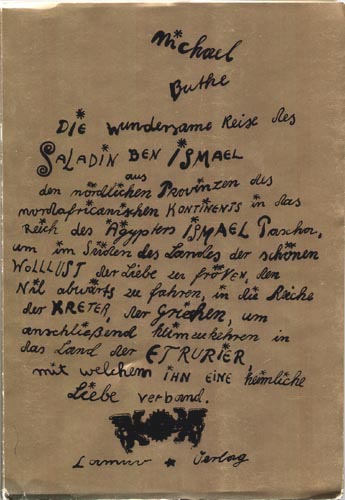 Michael
Buthe
DIE wundersame Reise des
SALADIN BEN ISMAEL
aus
den nördlichen Provinzen des
nordafricanischen KONTINENTS in das
Reich des Ägypters ISMAEL Pascha,
um im Süden des Landes der schönen
WOLLLUST der Liebe zu frönen, den
Nil abwärts zu fahren, in die Reiche
der KRETER, der Griechen, um
anschließend heimzukehren in
das Land der ETRURIER,
mit welchem IHN EINE heimliche
Liebe verband.
Lamuv Verlag